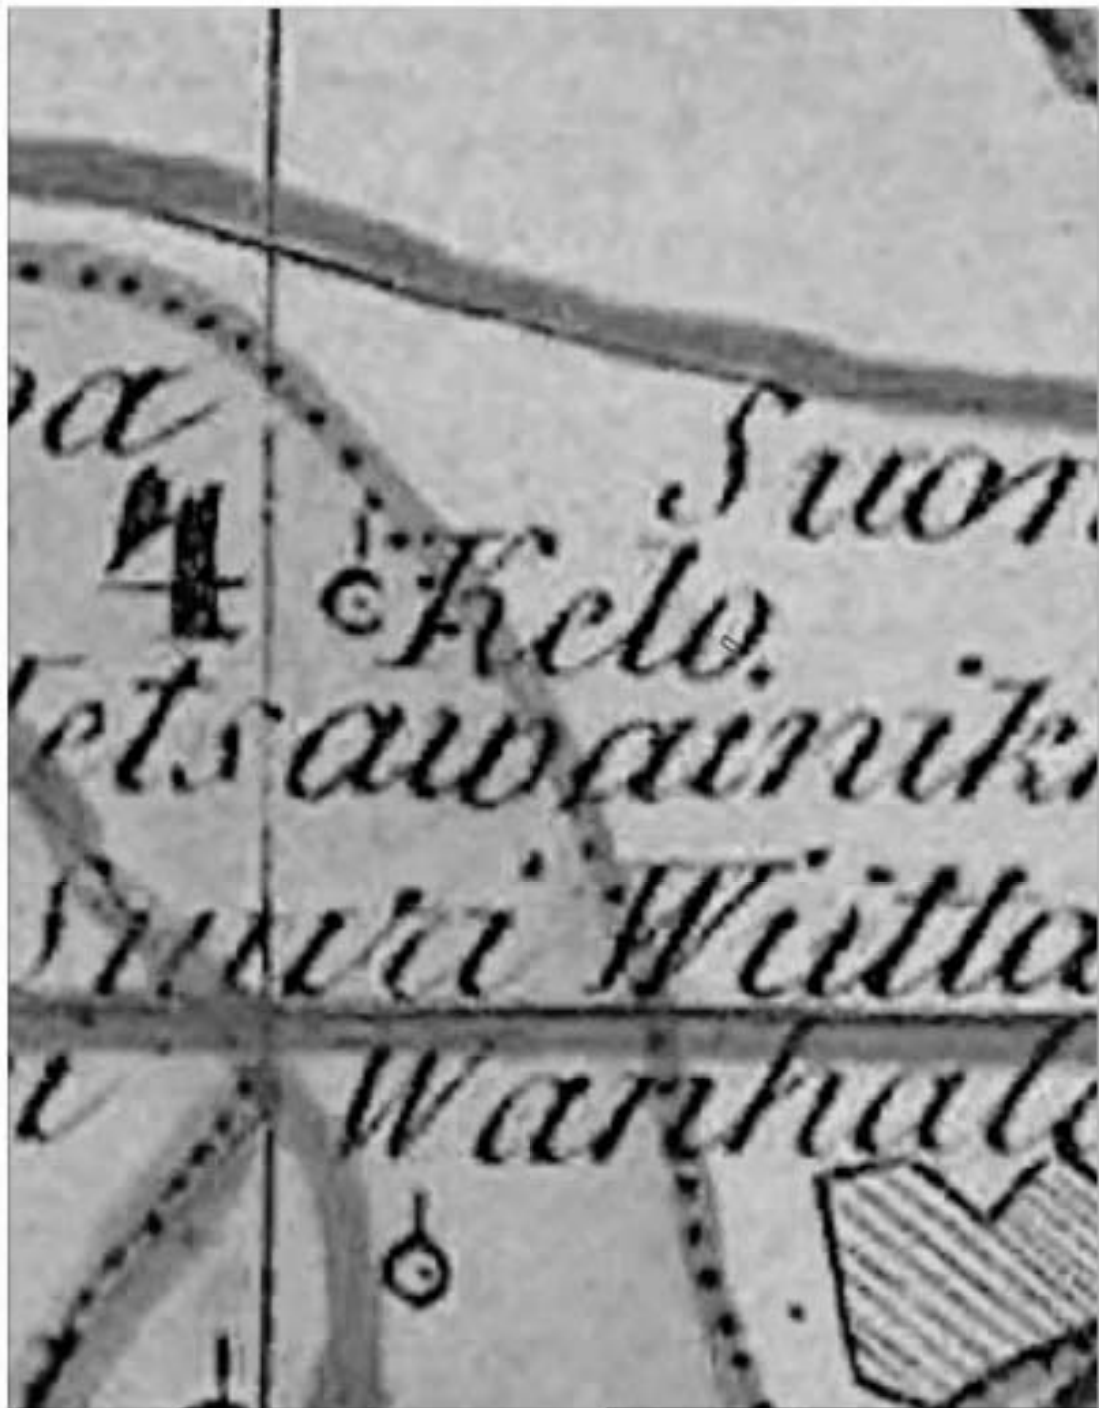 Suon
4
Kelo.
Metsawainik
Suuri Wiitta
Wanhala